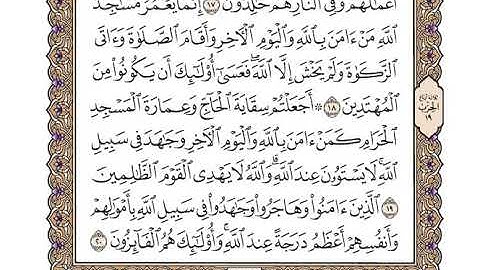 أَعْمَٰلُهُمْ وَفِى ٱلنَّارِ هُمْ خَٰلِدُونَ ١٧ إِنَّمَا يَعْمُرُ مَسَٰجِدَ
ٱللَّهِ مَنْ ءَامَنَ بِٱللَّهِ وَٱلْيَوْمِ ٱلْءَاخِرِ وَأَقَامَ ٱلصَّلَوٰةَ وَءَاتَى
ٱلزَّكَوٰةَ وَلَمْ يَخْشَ إِلَّا ٱللَّهَ ۖ فَعَسَىٰٓ أُو۟لَٰٓئِكَ أَن يَكُونُوا۟ مِنَ
ٱلْمُهْتَدِينَ ١٨ ۞ أَجَعَلْتُمْ سِقَايَةَ ٱلْحَآجِّ وَعِمَارَةَ ٱلْمَسْجِدِ
ٱلْحَرَامِ كَمَنْ ءَامَنَ بِٱللَّهِ وَٱلْيَوْمِ ٱلْءَاخِرِ وَجَٰهَدَ فِى سَبِيلِ
ٱللَّهِ ۚ لَا يَسْتَوُۥنَ عِندَ ٱللَّهِ ۗ وَٱللَّهُ لَا يَهْدِى ٱلْقَوْمَ ٱلظَّٰلِمِينَ
١٩ ٱلَّذِينَ ءَامَنُوا۟ وَهَاجَرُوا۟ وَجَٰهَدُوا۟ فِى سَبِيلِ ٱللَّهِ بِأَمْوَٰلِهِمْ
وَأَنفُسِهِمْ أَعْظَمُ دَرَجَةً عِندَ ٱللَّهِ ۚ وَأُو۟لَٰٓئِكَ هُمُ ٱلْفَآئِزُونَ ٢٠
الحزب
١٩